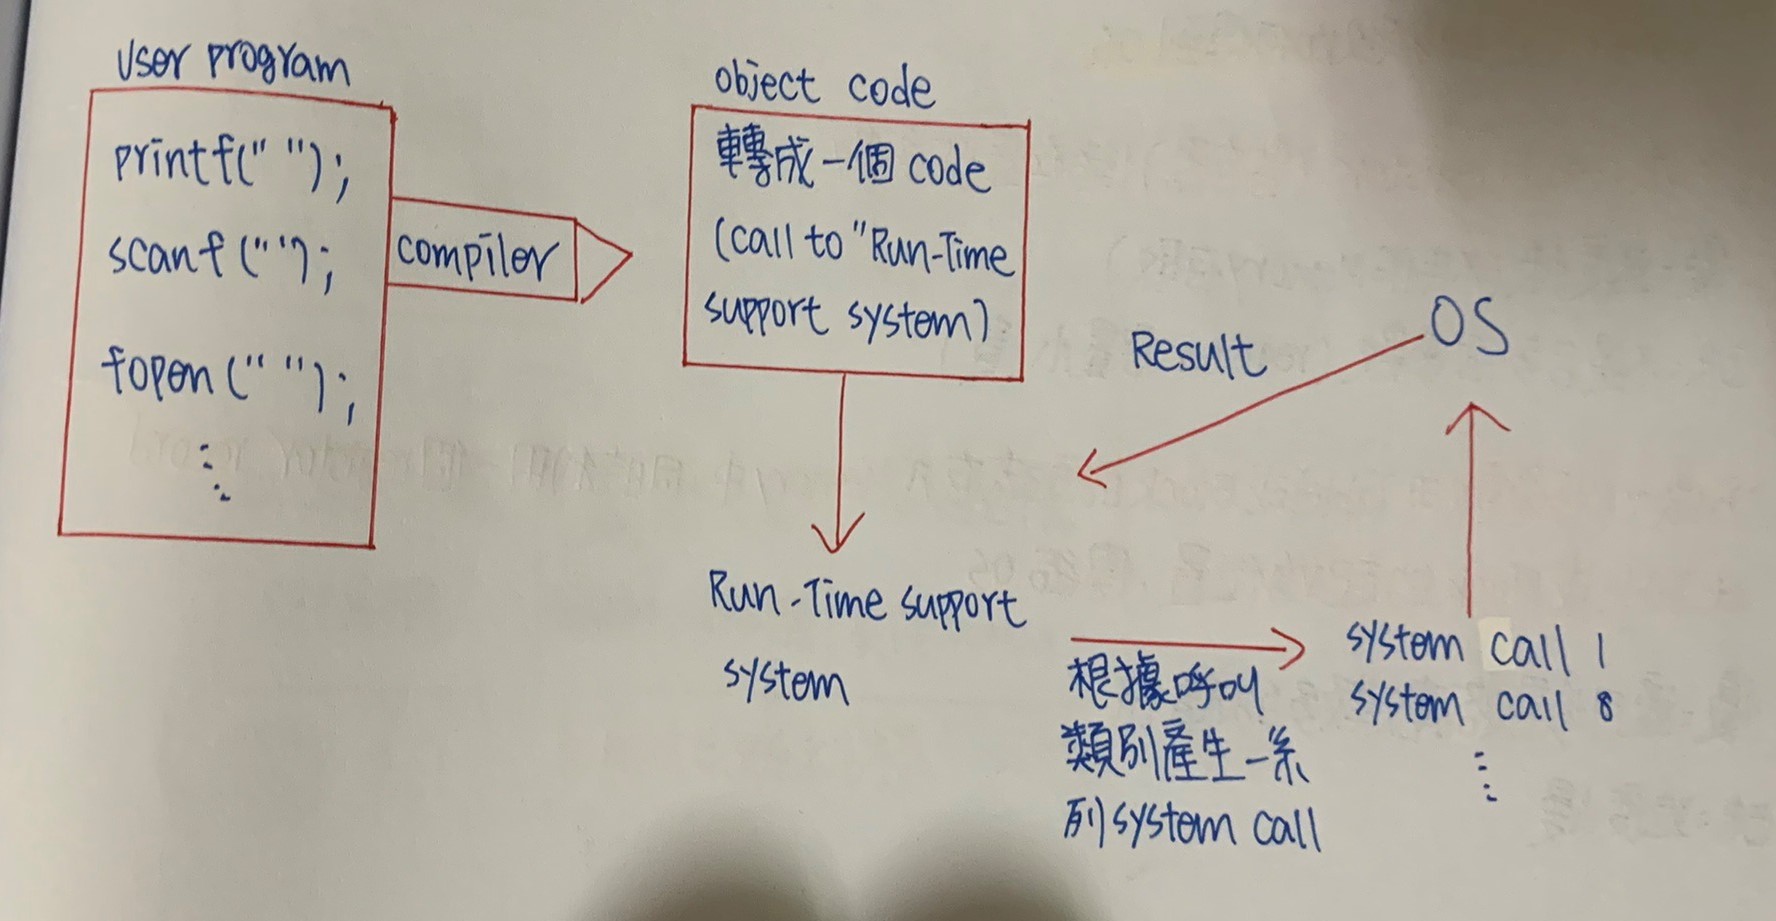 User program
printf(" ");
scanf("");
fopen(" ");
compiler
object code
轉成一個 code
(call to "Run-Time
support system)
Run-Time support
system
根據呼叫
類別產生一系
列 system call
system call 1
system call 8
OS
Result